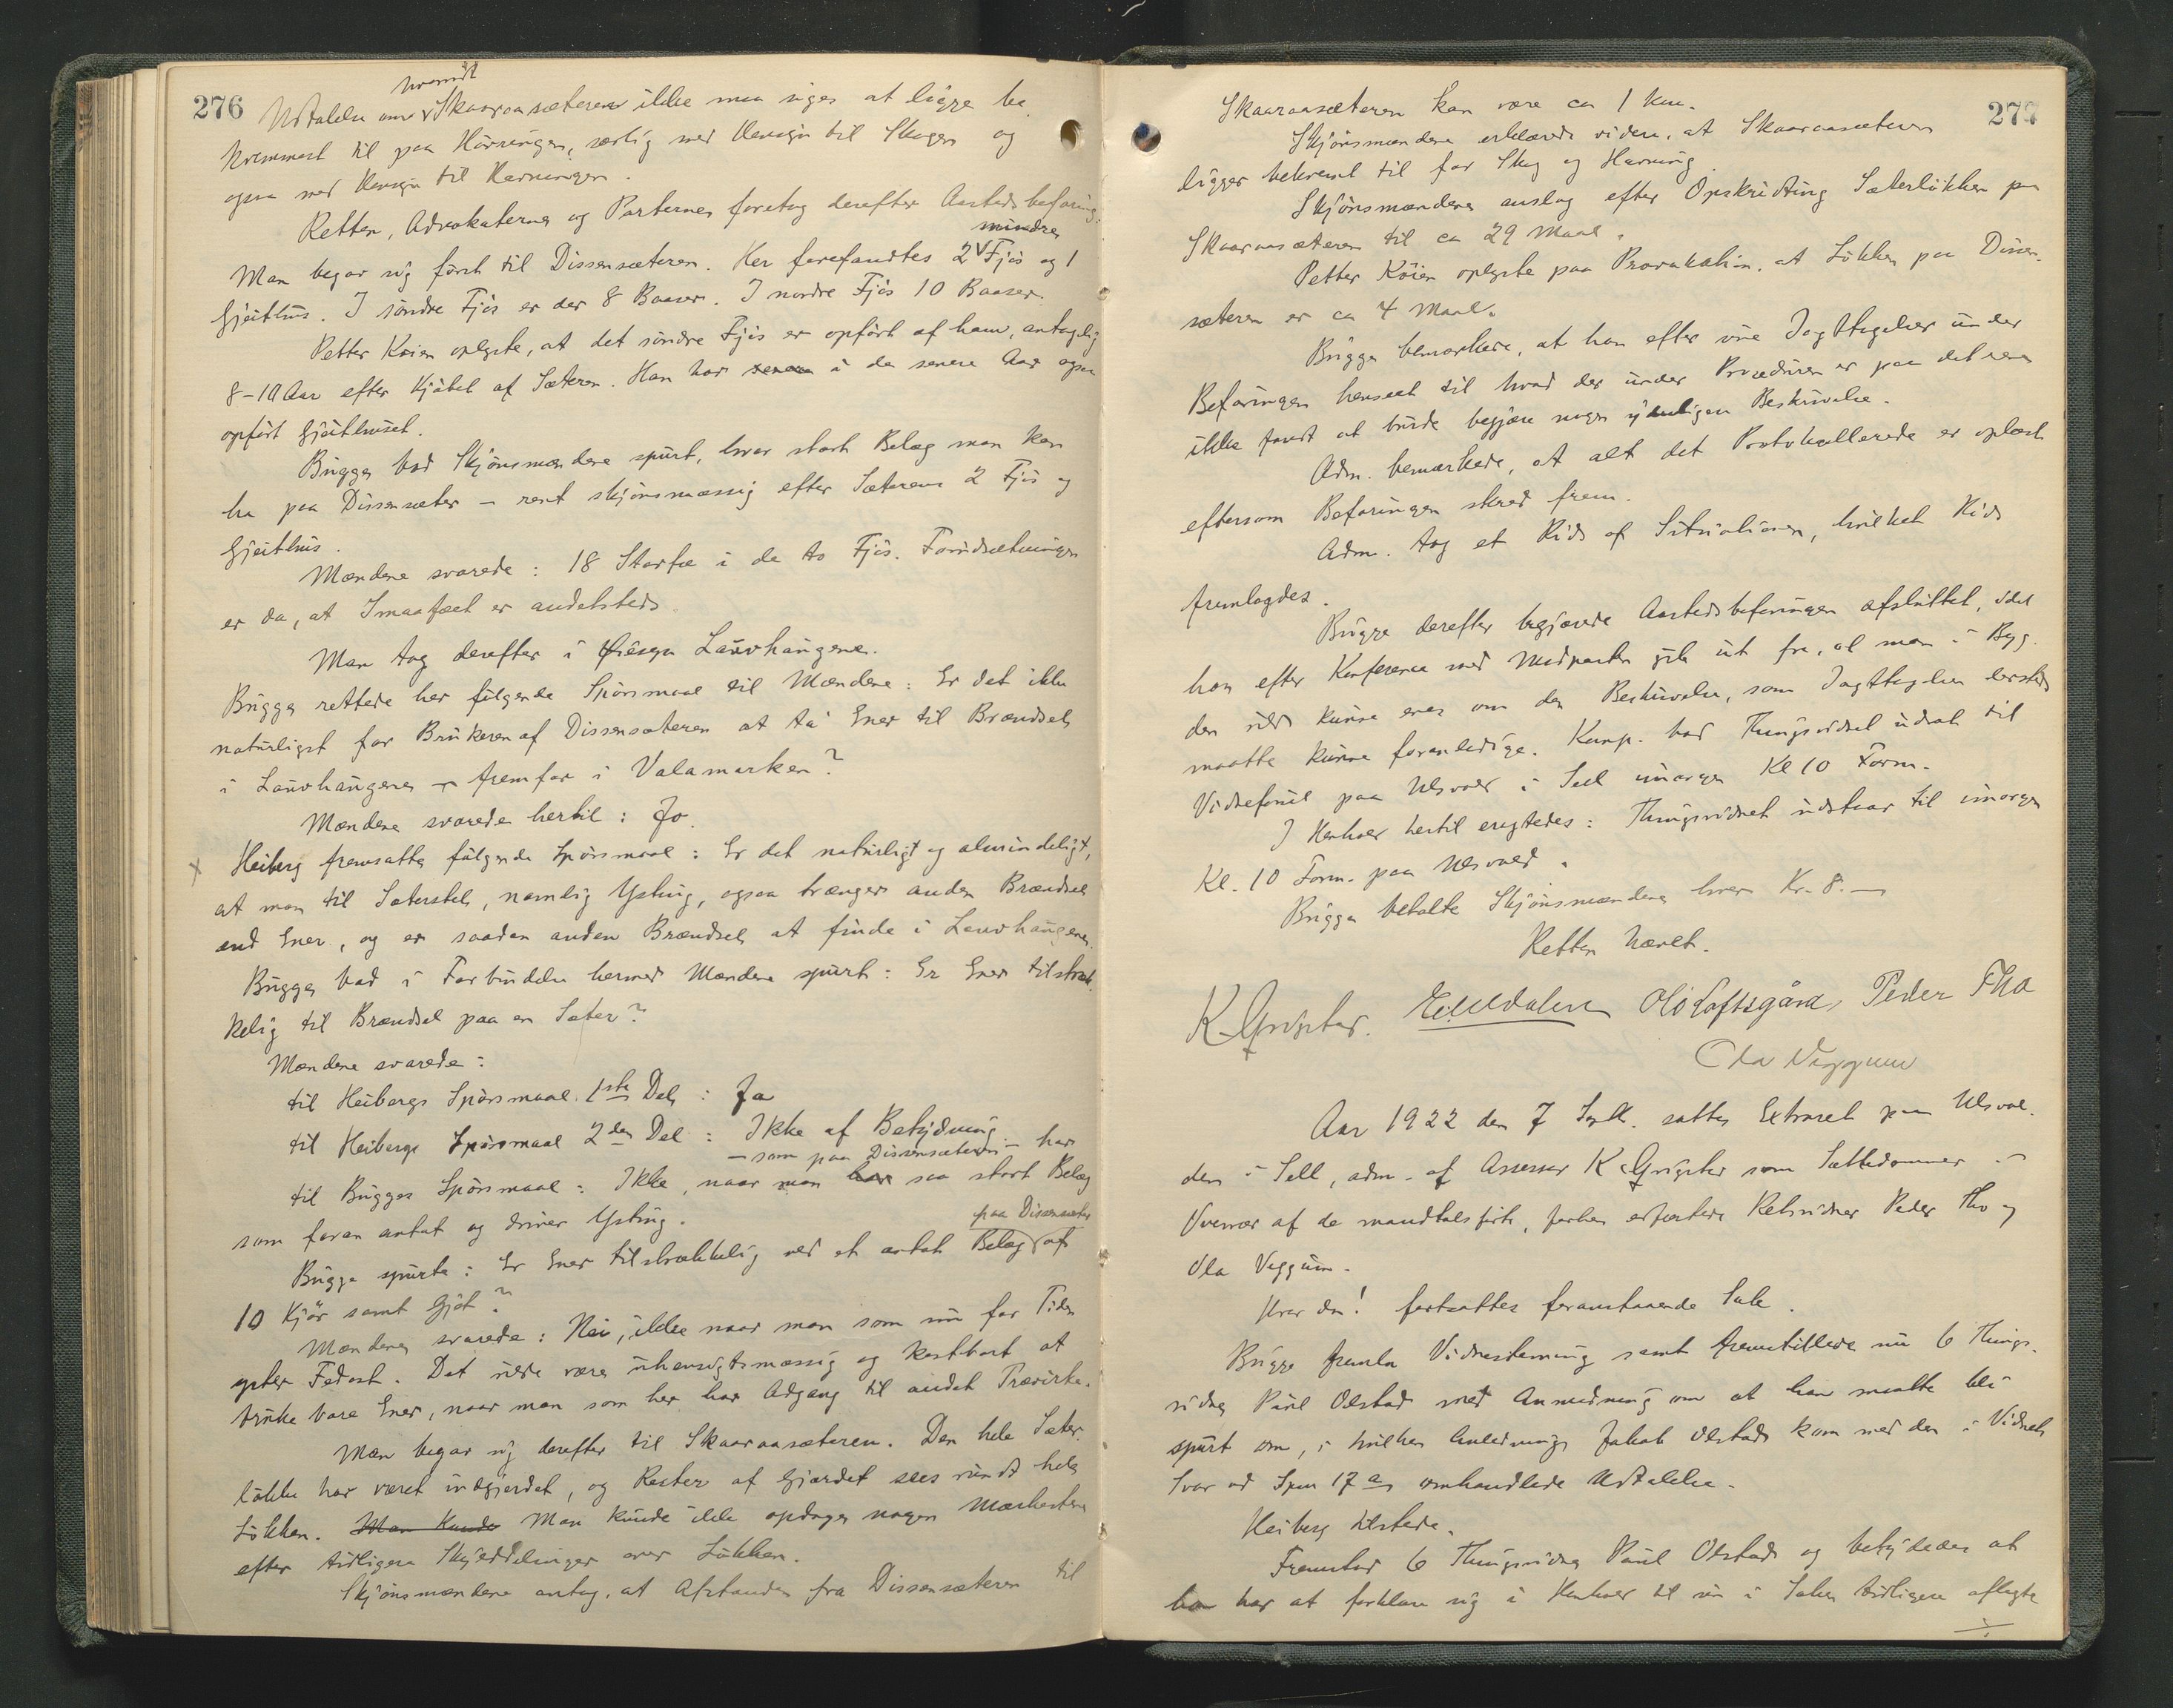 276
hvorvidt
Udtalelse om Skaaraasæteren ikke maa siges at ligge be
kvemmest til paa Havningen, særlig med Hensyn til Skogen og
ogsaa med Hensyn til Havningen.
Retten, Advokaterne og Parterne foretog derefter Aastedsbefaring.
mindre
Man begav sig först til Dissensæteren. Her forefandtes 2 Fjös og 1
Gjeithus. I söndre Fjös er der 8 Baaser. I nordre Fjös 10 Baaser.
Petter Köien oplyste, at det söndre Fjös er opfört af ham, antagelig
8-10 Aar efter Kjöbet af Sæteren. Han har i de senere Aar ogsaa
opfört Gjeithuset.
Bugge bad Skjönsmændene spurt, hvor stort Belæg man kan
ha paa Dissensæter - rent skjönsmæssig efter Sæterens 2 Fjös og
Gjeithus.
Mændene svarede: 18 Storfæ i de to Fjös. Forudsætningen
er da, at Smaafæet er andetsteds.
Man tog derefter i Öiesyn Lauvhaugene.
Bugge rettede her fölgende Spörsmaal til Mændene: Er det ikke
naturligst for Brukeren af Dissensæteren at ta Ener til Brændsel
i Lauvhaugene - fremfor i Valamarken?
Mændene svarede hertil: Jo.
x Heiberg fremsatte fölgende Spörsmaal: Er det naturligt og almindeligt,
at man til Sæterstel, nemlig Ysting, ogsaa trænger anden Brændsel
end Ener, og er saadan anden Brændsel at finde i Lauvhaugene.
Bugge bad i Forbindelse hermed Mændene spurt: Er Ener tilstræk-
kelig til Brændsel paa en Sæter?
Mændene svarede:
til Heibergs Spörsmaal 1ste Del: Ja
til Heibergs Spörsmaal 2den Del: Ikke af Betydning.
- som paa Dissensæteren - har
til Bugges Spörsmaal: Ikke, naar man har saa stort Belæg
som foran antat og driver Ysting.
paa Dissensæter
Bugge spurte: Er Ener tilstrækkelig ved et antat Belæg af
10 Kjör samt Gjet?
Mændene svarede: Nei, ikke naar man som nu for Tiden
yster Fetost. Det vilde være uhensigtsmæssig og kostbart at
bruke bare Ener, naar man som her har Adgang til andet Trævirke.
Man begav sig derefter til Skaaraasæteren. Den hele Sæter-
lökke har været indgjerdet, og Rester af Gjærdet sees rundt hele
Lökken. Man kunde Man kunde ikke opdage nogen Mærkesten
efter tidligere Skjeddelinger over Lökken.
Skjönsmændene antog, at Afstanden fra Dissensæteren til
277
Skaaraasæteren kan være ca 1 km.
Skjönsmændene erklærede videre, at Skaaraasæteren
ligger bekvemt til for Skog og Havning
Skjönsmændene anslog efter Opskridting Sæterlökken paa
Skaaraasæteren til ca 29 Maal.
Petter Köien oplyste paa Provokation, at Lökken paa Dissen-
sæteren er ca 4 Maal.
Bugge bemærkede, at han efter sine Iagttagelser under
Befaringen henseet til hvad der under Proceduren er paa det rene
ikke fandt at burde begjære nogen yderligere Beskrivelse.
Adm. bemærkede, at alt det Protokollerede er oplæst
eftersom Befaringen skred frem.
Adm. tog et Rids af Situationen, hvilket Rids
fremlagdes.
Bugge derefter begjærede Aastedsbefaringen afsluttet, idet
han efter Konferance med Modparten gik ut fra, at man i Byg-
den vilde kunne enes om den Beskrivelse, som Iagttagelsen dersteds
maatte kunne foranledige. Komp. bad Thingsvidnet udsat til
Vidneförsel paa Ulsvold i Sell imorgen Kl 10 Form.
I Henhold hertil eragtedes: Thingsvidnet udstaar til imorgen
Kl. 10 Form. paa Ulsvold.
Bugge betalte Skjönsmændene hver Kr. 8.-
Retten hævet.
K Ol Loftsgård, Peder Tho
Ola Veggum
Aar 1922 den 7 Septb. sattes Extraret paa Ulsvol-
den i Sell, adm. af Assessor K som Sættedommer i
Overvær af de mandtalsförte, forhen edfæstede Retsvidner Peder Tho og
Ola Veggum.
Hvor da! fortsattes foranstaaende Sak.
Bugge fremla Vidnestevning samt fremstillede nu 6 Things-
vidne Paul Olstad med Anmodning om at han maatte bli
spurt om, i hvilken Anledning Jakob Olstad kom med den i Vidnets
Svar ad Spm 17 a omhandlede Udtalelse.
Heiberg tilstede.
Fremstod 6 Thingsvidne Paul Olstad og betydedes at
han har at forklare sig i Henhold til sin i Saken tidligere aflagte